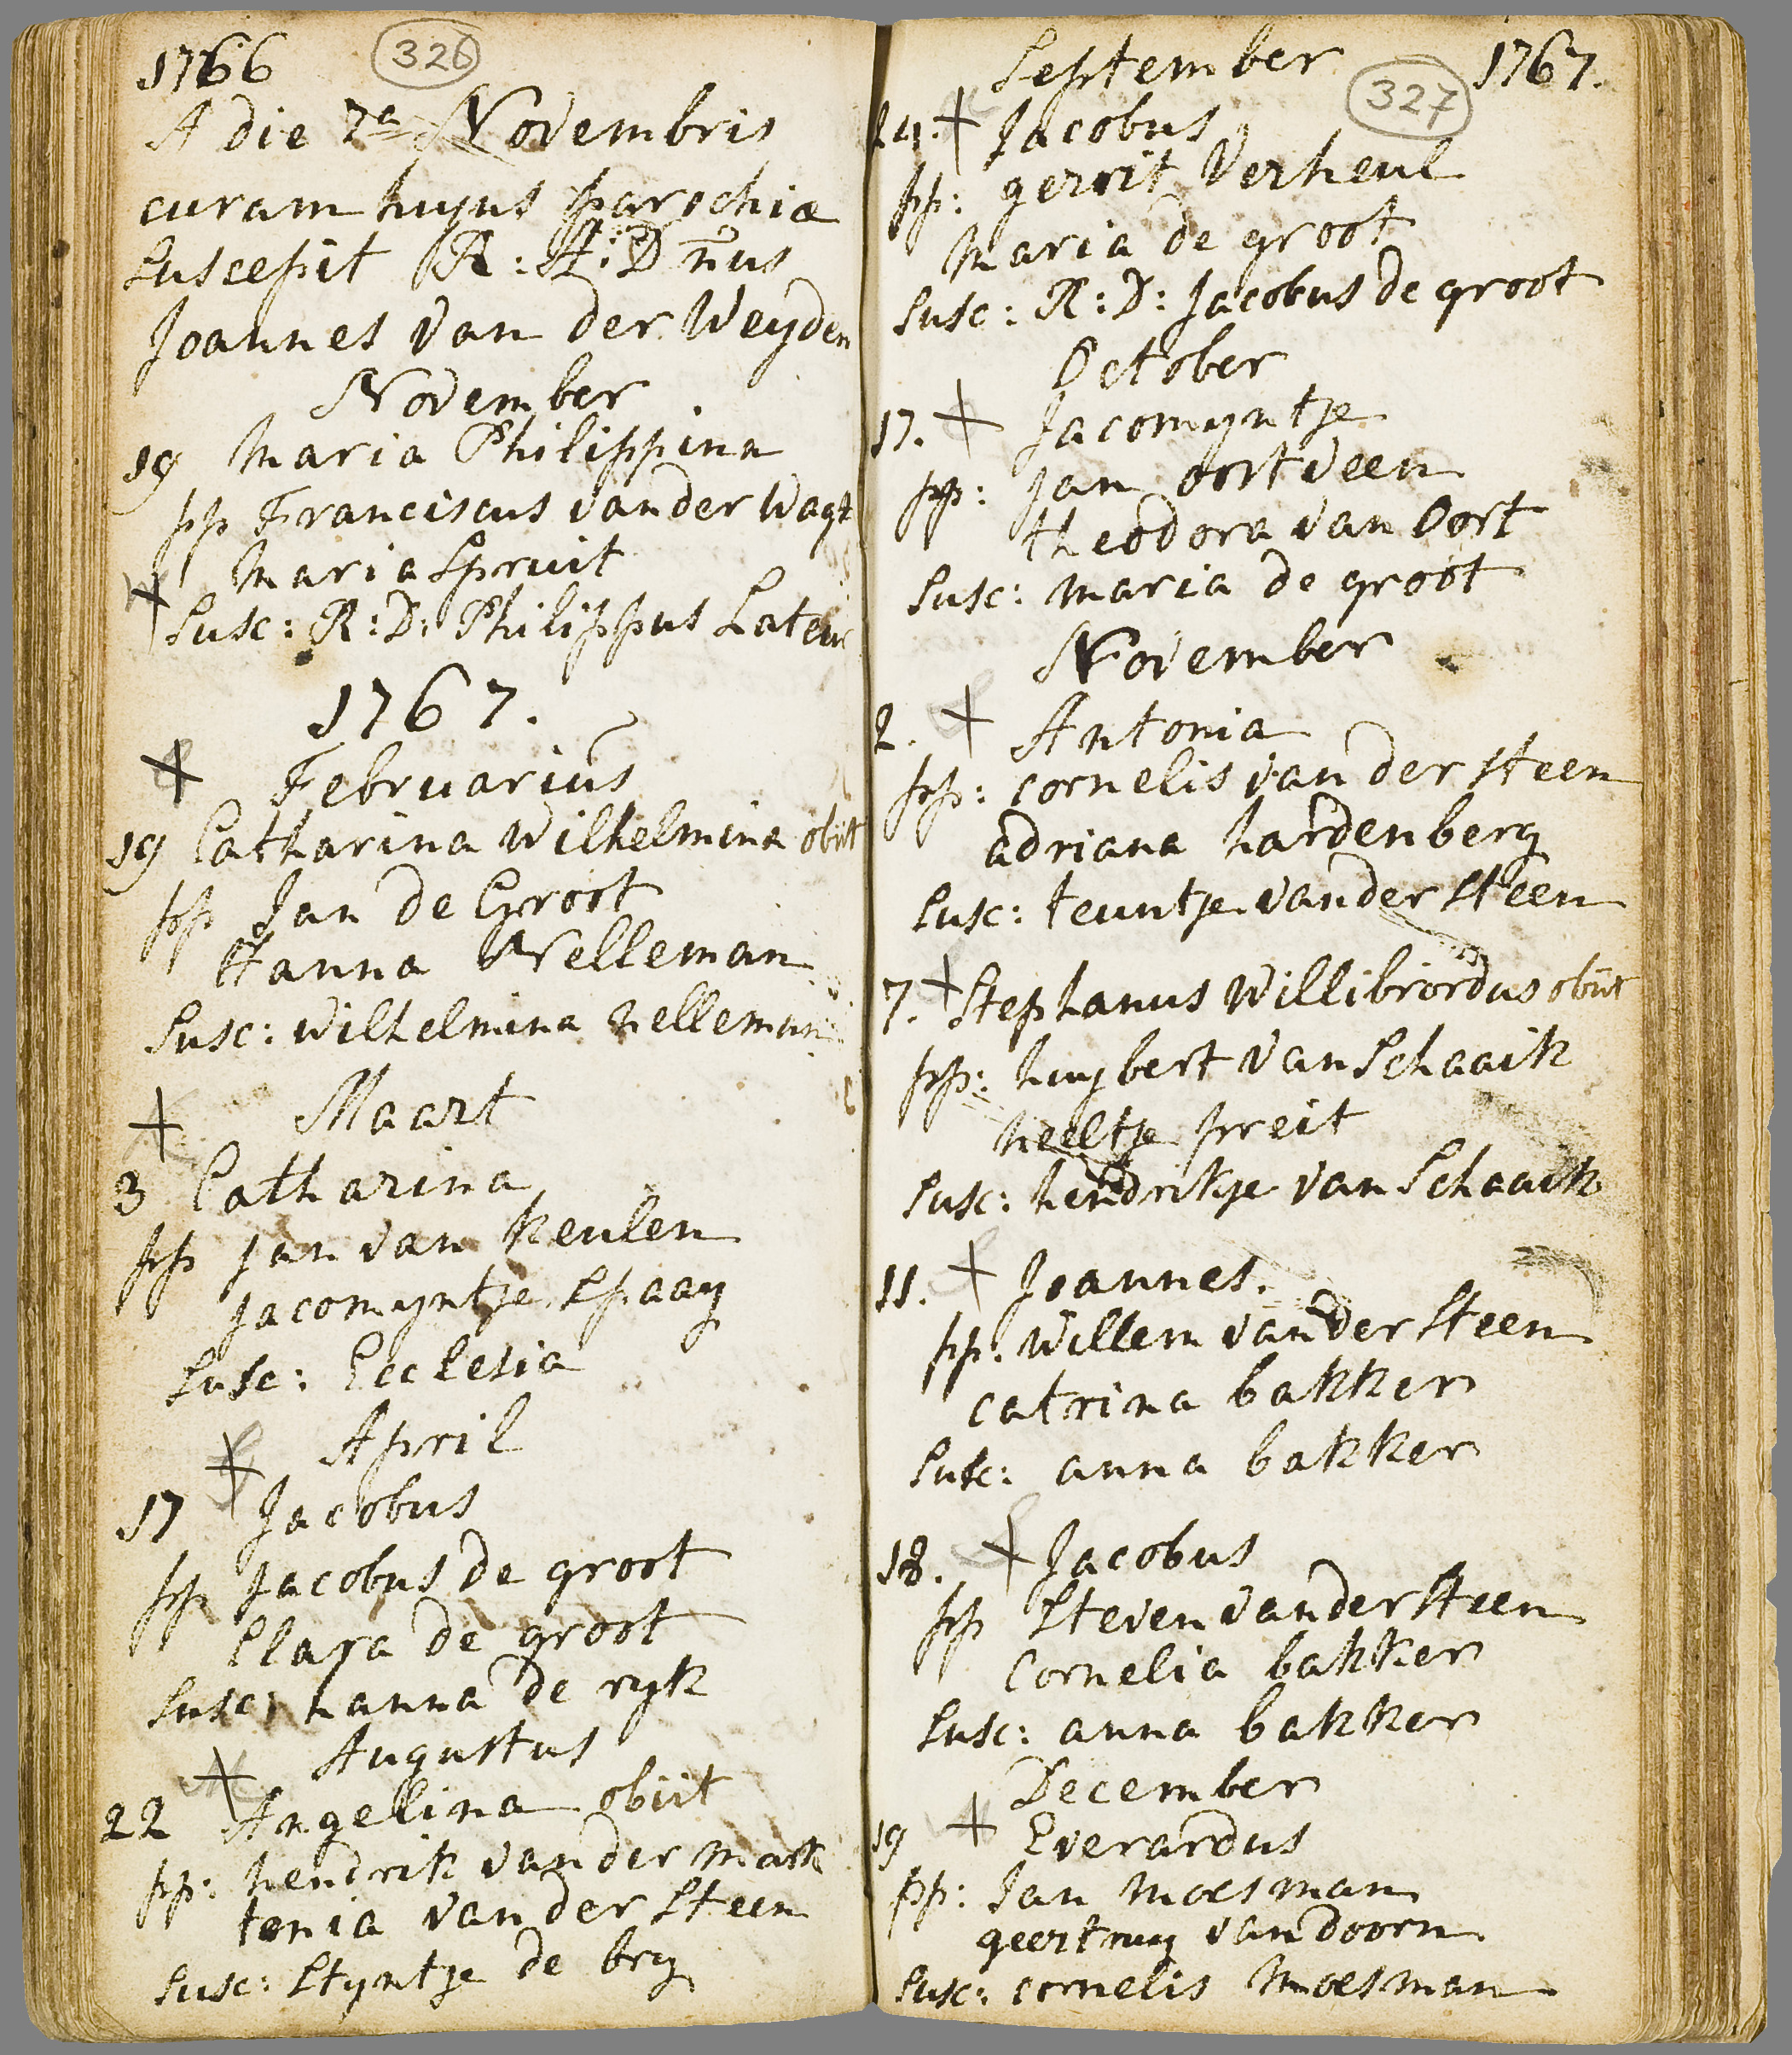 1766
326
A die 7a Novembris
curam hujus parochiæ
Suscepit R: A: Dnus
Joannes van der Weyden
November
19 Maria Philippina
pp Franciscus van der Wagt
Maria Spruit
Susc: R: D: Philippus
1767.
Februarius
19 Catharina Wilhelmina obiit
pp Jan de Groot
Hanna Nelleman
Susc: Wilhelmina nelleman
Maart
3 Catharina
pp jan van keulen
jacomyntje Spaay
Susc: Ecclesia
April
17 Jacobus
pp jacobus de groot
Clara de groot
Susc: hanna de ryk
Augustus
22 Angelina obiit
pp: hendrik van der mark
tonia van der Steen
Susc: Styntje de bry
September 1767.
327
24. Jacobus
pp: gerrit Verheul
Maria de groot
Susc: R: D: Jacobus de groot
October
17. Jacomyntje
pp: jan oortveen
theodora van Oort
Susc: maria de groot
November
2. Antonia
pp: cornelis van der steen
adriana hardenberg
Susc: teuntje van der Steen
7. Stephanus Willibrordus obiit
pp: huybert van Schaaik
heeltje preit
Susc: hendrikje van Schaaik
11. Joannes.
pp. Willem van der Steen
catrina bakker
Susc: anna bakker
18. Jacobus
pp Steven van der Steen
Cornelia bakker
Susc: anna bakker
December
19 Everardus
pp: Jan Moesman
geertruy van doorn
Susc: cornelis Moesman